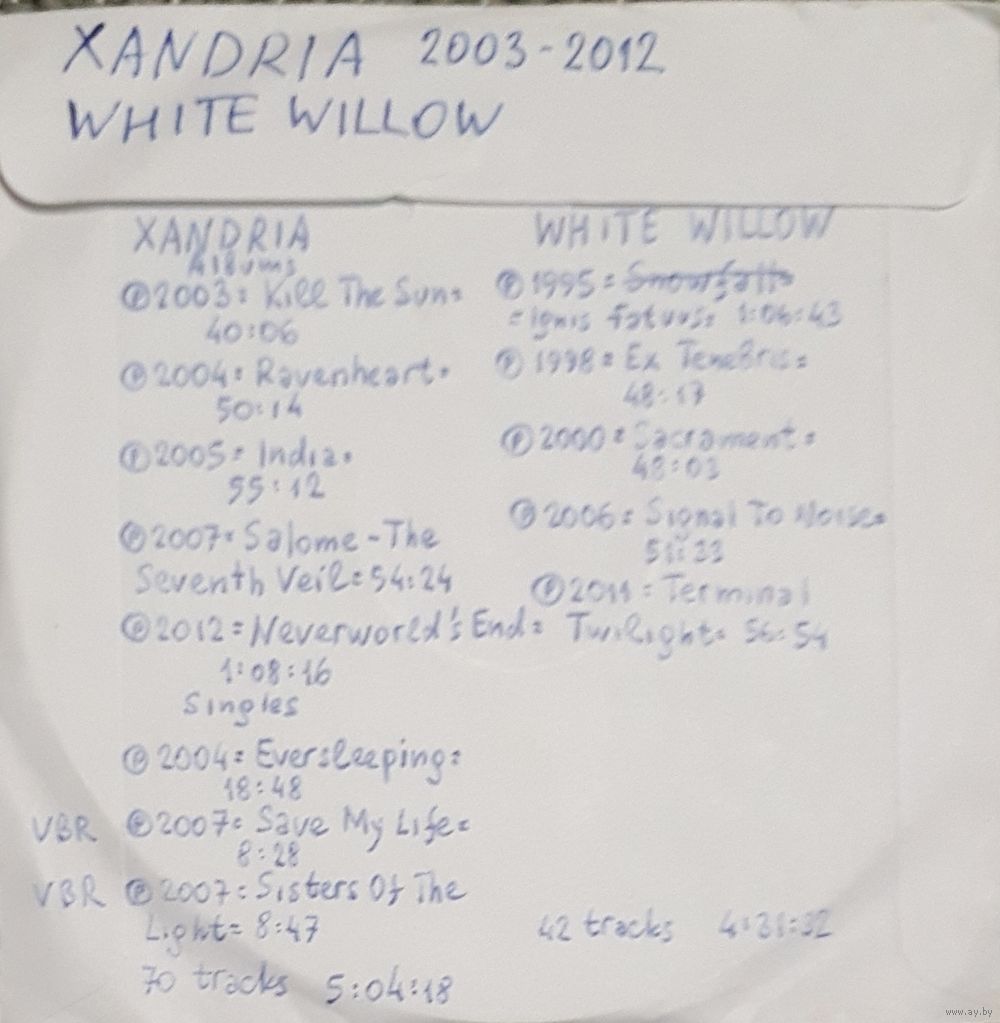 XANDRIA 2003-2012
WHITE WILLOW
XANDRIA
Albums
Ⓟ2003= Kill The Sun=
40:06
Ⓟ2004= Ravenheart=
50:14
Ⓟ2005= India=
55:12
Ⓟ2007= Salome - The
Seventh Veil= 54:24
Ⓟ2012= Neverworld's End=
1:08:16
Singles
Ⓟ2004= Eversleeping=
18:48
VBR Ⓟ2007= Save My Life=
8:28
VBR Ⓟ2007= Sisters Of The
Light= 8:47
70 tracks 5:04:18
WHITE WILLOW
Ⓟ1995= Snowfall
= ignis fatuus=
Ⓟ1998= Ex Tenebris=
48:17
Ⓟ2000= Sacrament=
48:03
Ⓟ2006= Signal To Noise=
Ⓟ2011= Terminal
Twilight= 56:54
42 tracks
www.ay.by